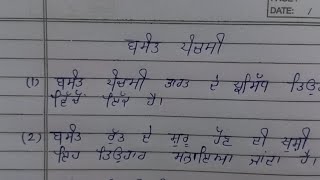 DATE: /
ਬਸੰਤ ਪੰਚਮੀ
(1) ਬਸੰਤ ਪੰਚਮੀ ਭਾਰਤ ਦੇ ਪ੍ਰਸਿੱਧ ਤਿਉਹਾਰਾਂ
ਵਿੱਚੋਂ ਇੱਕ ਹੈ।
(2) ਬਸੰਤ ਰੁੱਤ ਦੇ ਸ਼ੁਰੂ ਹੋਣ ਦੀ ਖੁਸ਼ੀ
ਇਹ ਤਿਉਹਾਰ ਮਨਾਇਆ ਜਾਂਦਾ ਹੈ।